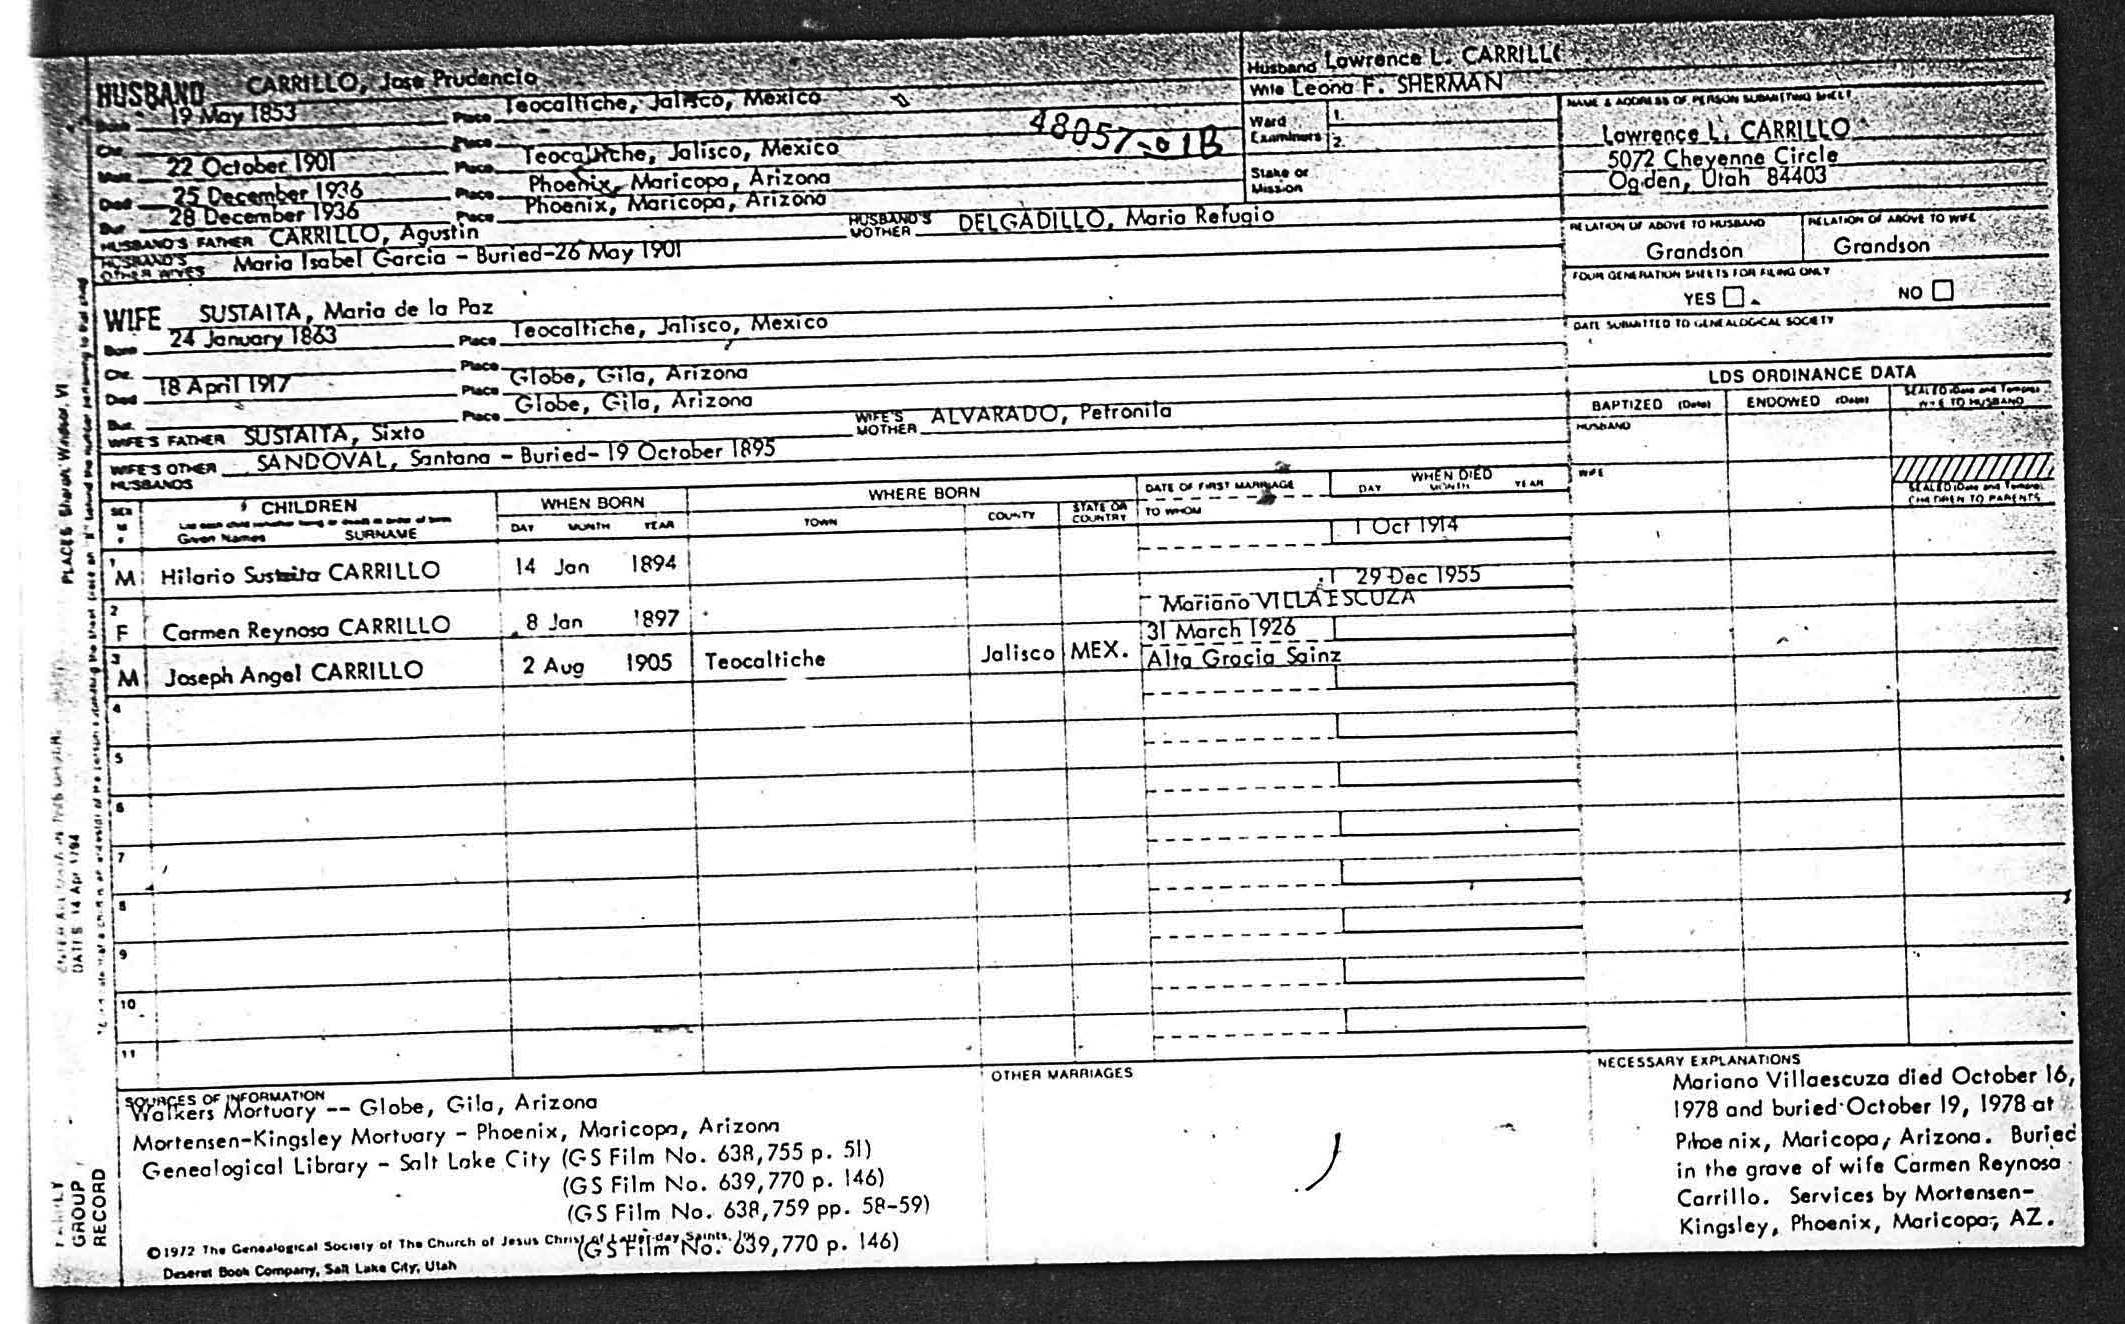 HUSBAND CARRILLO, Jose Prudencio
Born 19 May 1853 Place Teocaltiche, Jalisco, Mexico
Chr. Place
48057-01B
Marr. 22 October 1901 Place Teocaltiche, Jalisco, Mexico
Died 25 December 1936 Place Phoenix, Maricopa, Arizona
Bur. 28 December 1936 Place Phoenix, Maricopa, Arizona
HUSBAND'S FATHER CARRILLO, Agustin HUSBAND'S MOTHER DELGADILLO, Maria Refugio
HUSBAND'S OTHER WIVES Maria Isabel Garcia - Buried-26 May 1901
Husband Lawrence L. CARRILLO
Wife Leona F. SHERMAN
Ward 1.
Examiners 2.
Stake or Mission
NAME & ADDRESS OF PERSON SUBMITTING SHEET
Lawrence L. CARRILLO
5072 Cheyenne Circle
Ogden, Utah 84403
RELATION OF ABOVE TO HUSBAND RELATION OF ABOVE TO WIFE
Grandson Grandson
FOUR GENERATION SHEETS FOR FILING ONLY
YES NO
DATE SUBMITTED TO GENEALOGICAL SOCIETY
WIFE SUSTAITA, Maria de la Paz
Born 24 January 1863 Place Teocaltiche, Jalisco, Mexico
Chr. Place
Died 18 April 1917 Place Globe, Gila, Arizona
Bur. Place Globe, Gila, Arizona
WIFE'S FATHER SUSTAITA, Sixto WIFE'S MOTHER ALVARADO, Petronila
WIFE'S OTHER HUSBANDS SANDOVAL, Santana - Buried- 19 October 1895
LDS ORDINANCE DATA
BAPTIZED (Date) ENDOWED (Date) SEALED (Date and Temple) WIFE TO HUSBAND
HUSBAND
WIFE
SEALED (Date and Temple) CHILDREN TO PARENTS
SEX M F CHILDREN WHEN BORN WHERE BORN DATE OF FIRST MARRIAGE WHEN DIED
List each child (whether living or dead) in order of birth DAY MONTH YEAR TOWN COUNTY STATE OR COUNTRY TO WHOM DAY MONTH YEAR
Given Names SURNAME
1 M Hilario Sustaita CARRILLO 14 Jan 1894 1 Oct 1914
2 F Carmen Reynosa CARRILLO 8 Jan 1897 29 Dec 1955
Mariano VILLAESCUZA
3 M Joseph Angel CARRILLO 2 Aug 1905 Teocaltiche Jalisco MEX. 31 March 1926
Alta Gracia Sainz
4
5
6
7
8
9
10
11
SOURCES OF INFORMATION
Walkers Mortuary -- Globe, Gila, Arizona
Mortensen-Kingsley Mortuary - Phoenix, Maricopa, Arizona
Genealogical Library - Salt Lake City (GS Film No. 638,755 p. 51)
(GS Film No. 639,770 p. 146)
(GS Film No. 638,759 pp. 58-59)
(GS Film No. 639,770 p. 146)
©1972 The Genealogical Society of The Church of Jesus Christ of Latter-day Saints, Inc.
Deseret Book Company, Salt Lake City, Utah
OTHER MARRIAGES
NECESSARY EXPLANATIONS
Mariano Villaescuza died October 16,
1978 and buried October 19, 1978 at
Phoenix, Maricopa, Arizona. Buried
in the grave of wife Carmen Reynosa
Carrillo. Services by Mortensen-
Kingsley, Phoenix, Maricopa, AZ.
FAMILY GROUP RECORD
DATES 14 Apr 1794
PLACES Sharon, Windsor, VT